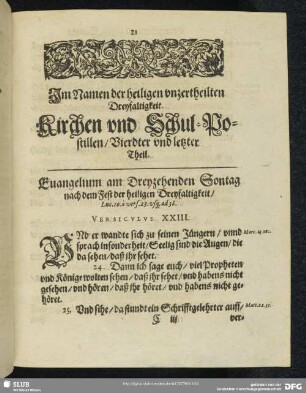 21
Im Namen der heiligen vnzertheilten
Dreyfaltigkeit.
Kirchen vnd Schul-Po-
stillen / Vierdter vnd letzter
Theil.
Euangelium am Dreyzehenden Sontag
nach dem Fest der heiligen Dreyfaltigkeit /
Luc. 10. à vers. 23. vsq. ad 38.
VERSICVLVS XXIII.
VNd er wandte sich zu seinen Jüngern / vnnd
sprach insonderheit / Seelig sind die Augen / die
da sehen / daß jhr sehet.
24. Dann ich sage euch / viel Propheten
vnd Könige wolten sehen / daß jhr sehet / vnd habens nicht
gesehen / vnd hören / daß jhr höret / vnd habens nicht ge-
höret.
25. Vnd sihe / da stund ein Schrifftgelehrter auff /
C iij
ver-
SLUB
Wir führen Wissen.
DFG